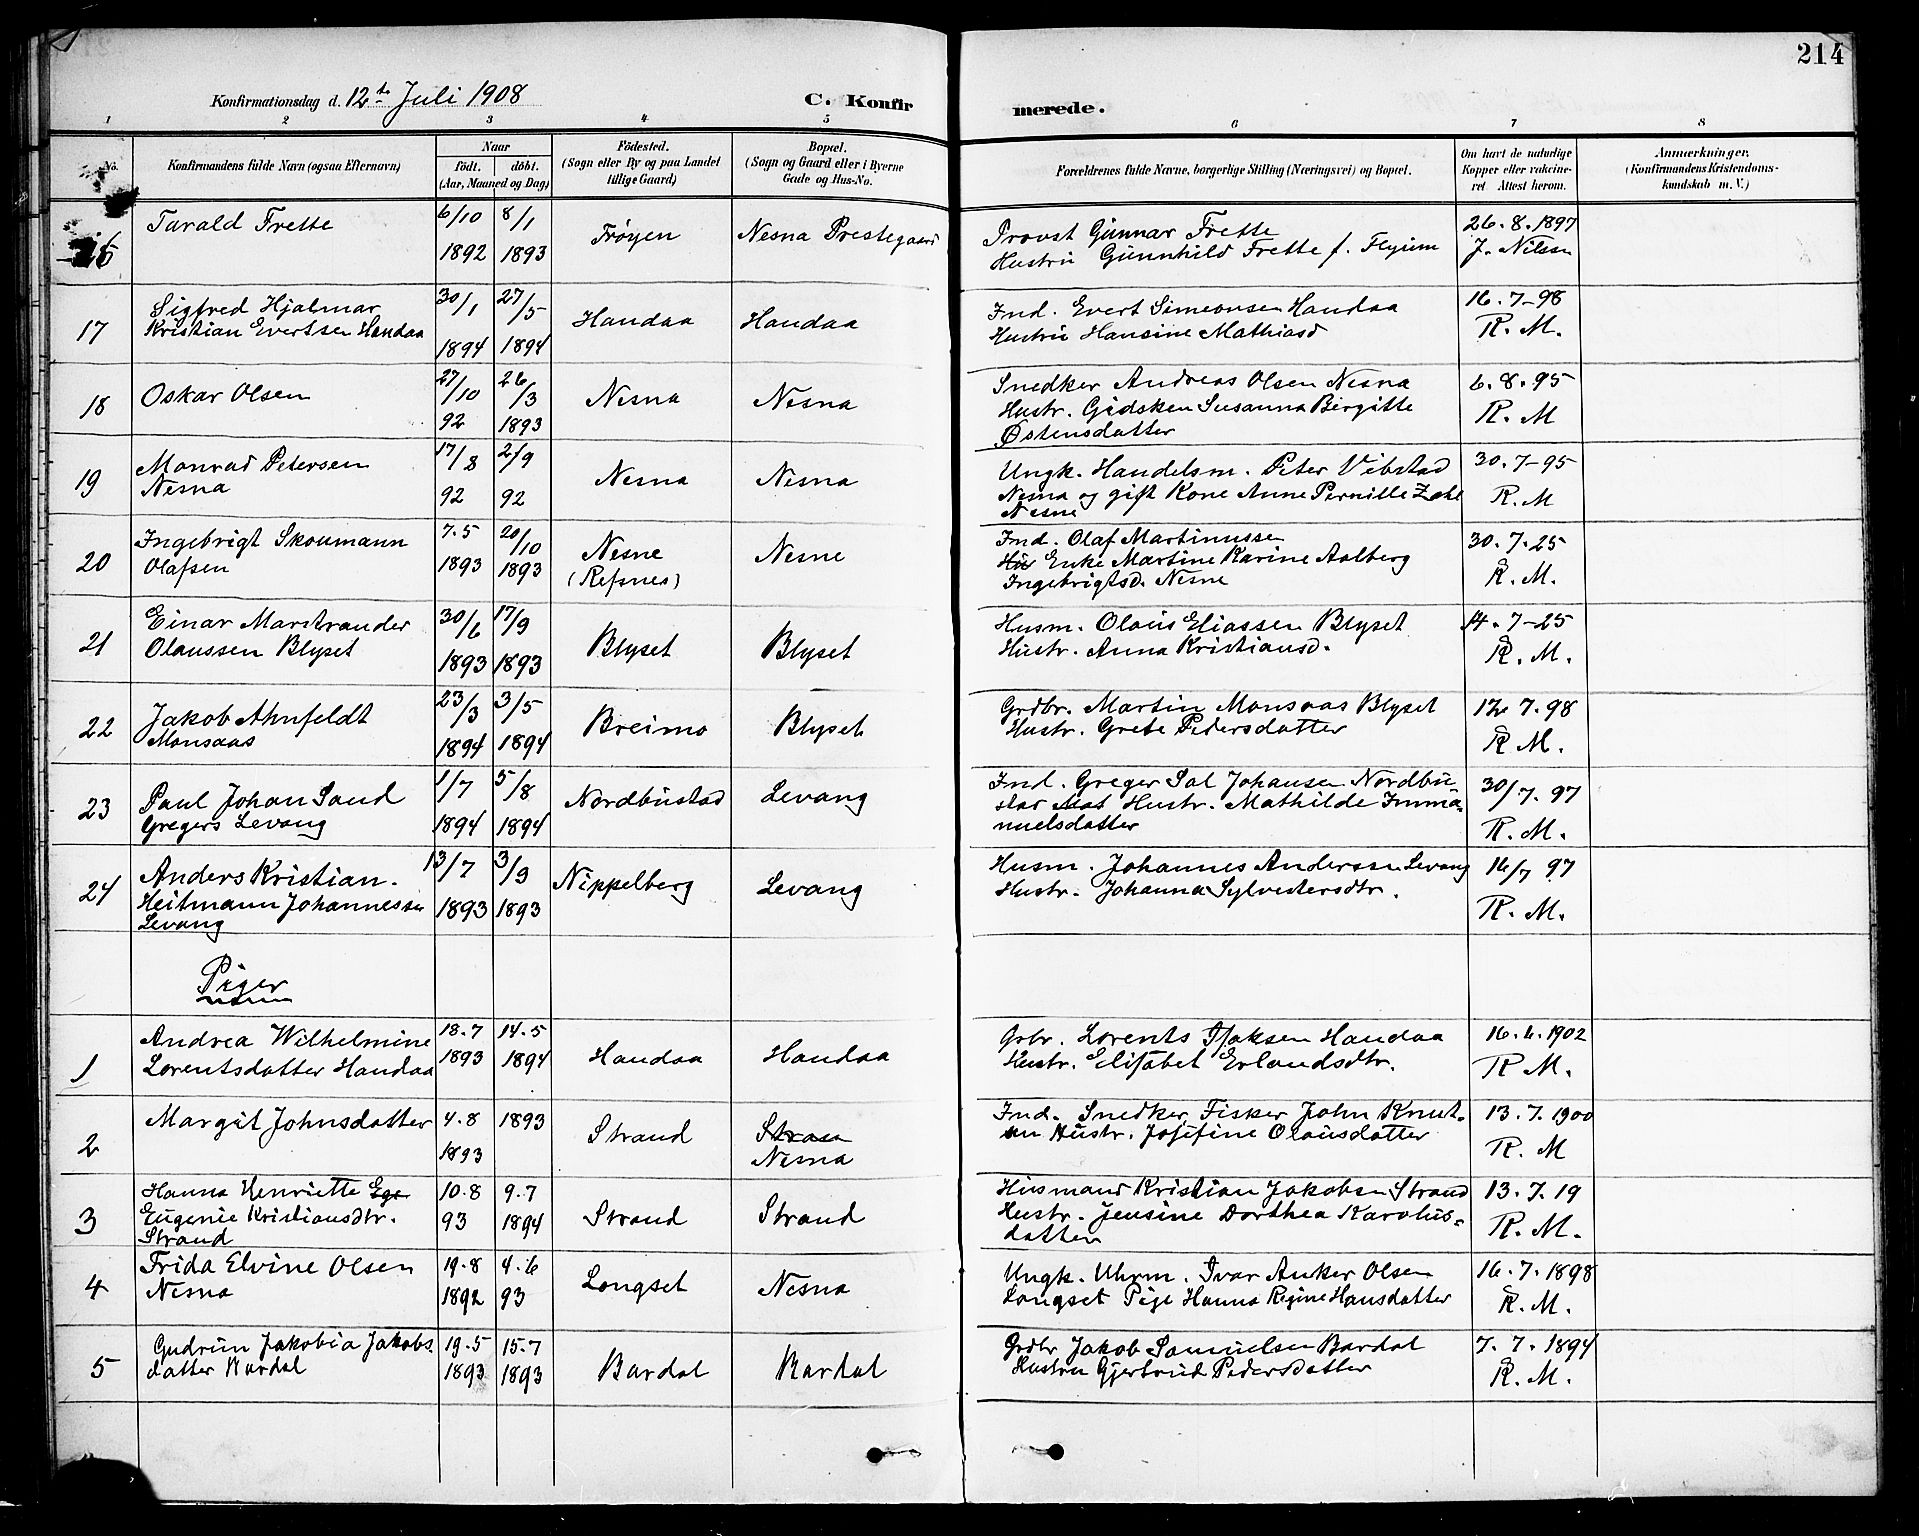 214
Konfirmationsdag d. 12te Juli 1908
C. Konfirmerede.
1 2 3 4 5 6 7 8
No.
Konfirmandens fulde Navn (ogsaa Efternavn)
Naar
födt. döbt.
(Aar, Maaned og Dag)
Födested.
(Sogn eller By og paa Landet
tillige Gaard)
Bopæl.
(Sogn og Gaard eller i Byerne
Gade og Hus-No.
Forældrenes fulde Navne, borgerlige Stilling (Næringsvei) og Bopæl.
Om havt de naturlige
Kopper eller vakcine-
ret Attest herom.
Anmærkninger.
(Konfirmandens Kristendoms-
kundskab m. V.)
16 Tarald Frette 6/10 1892 8/1 1893 Frøyen Nesna Prestegaard
Provst Gunnar Frette
Hustru Gunnhild Frette f. Flyum
26.8.1897
J. Nilsen
17 Sigfred Hjalmar
Kristian Evertsen Handaa
30/1 1894 27/5 1894 Handaa Handaa
Ind. Evert Simeonsen Handaa
Hustru Hansine Mathiasd
16.7-98
R. M.
18 Oskar Olsen 27/10 92 26/3 1893 Nesna Nesna
Snedker Andreas Olsen Nesna
Hustr. Gidsken Susanna Birgitte
Østensdatter
6.8.95
R. M
19 Monrad Petersen
Nesna
17/8 92 2/9 92 Nesna Nesna
Ungk. Handelsm. Peter Vibstad
Nesna og gift Kone Anne Pernille Zahl
Nesne
30.7-95
R. M
20 Ingebrigt Skoumann
Olafsen
7.5 1893 20/10 1893 Nesne
(Refsnes)
Nesne
Ind. Olaf Martinussen
Hu Enke Martine Karine Aalberg
Ingebrigtsd. Nesne
30.7.25
R. M.
21 Einar Marstrander
Olaussen Blyset
30/6 1893 17/9 1893 Blyset Blyset
Husm. Olaus Eliassen Blyset
Hustr. Anna Kristiansd.
14.7-25
R. M.
22 Jakob Ahnfeldt
Monsaas
23/3 1894 3/5 1894 Breimo Blyset
Grdbr. Martin Monsaas Blyset
Hustr. Grete Pedersdatter
12.7.98
R M.
23 Paul Johan Sand
Gregers Levang
1/7 1894 5/8 1894 Nordbustad Levang
Ind. Greger Sal Johansen Nordbu-
stad Hustr. Mathilde Imma-
nuelsdatter
30/7.97
R. M.
24 Anders Kristian.
Heitmann Johannessen
Levang
13/7 1893 3/9 1893 Nippelberg Levang
Husm. Johannes Anderssen Levang
Hustr. Johanna Sylvestersdtr.
16/7 97
R. M.
Piger
1 Andrea Wilhelmine
Lorentsdatter Handaa
18.7 1893 14.5 1894 Handaa Handaa
Grbr. Lorents Isaksen Handaa
Hustr. Elisabet Erlandsdtr.
16.6.1902
R M.
2 Margit Johnsdatter 4.8 1893 1893 Strand Stran
Nesna
Ind. Snedker Fisker John Knut-
sen Hustr. Josefine Olausdatter
13.7.1900
R. M
3 Hanna Henriette Ege
Eugenie Kristiansdtr.
Strand
10.8 93 9.7 1894 Strand Strand
Husmand Kristian Jakobsen Strand
Hustr. Jensine Dorthea Karolus-
datter
13.7.19
R. M.
4 Frida Elvine Olsen
Nesna
19.8 1892 4.6 93 Longset Nesna
Ungk. Uhrm. Ivar Anker Olsen
Longset Pige Hanna Regine Hansdatter
16.7.1898
R. M.
5 Gudrun Jakobia Jakobs-
datter Bardal
19.5 1893 15.7 1893 Bardal Bardal
Grdbr Jakob Samuelsen Bardal
Hustru Gjertrud Pedersdatter
7.7.1894
R. M.